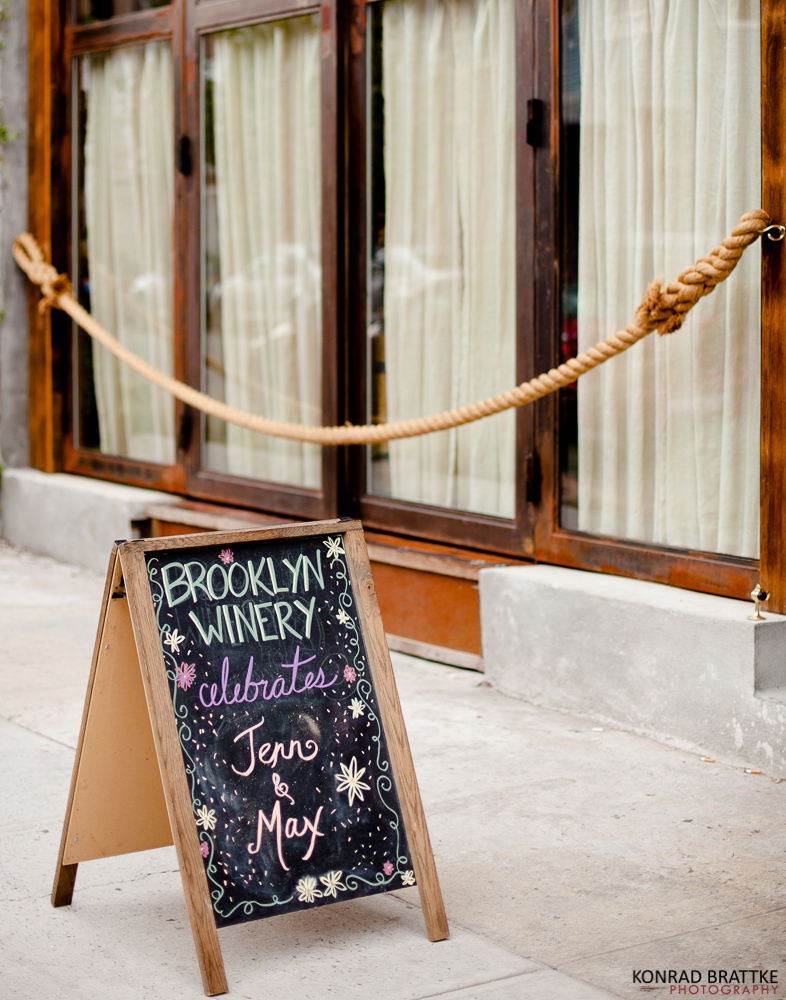 BROOKLYN
WINERY
celebrates
Jenn
&
Max
KONRAD BRATTKE
PHOTOGRAPHY